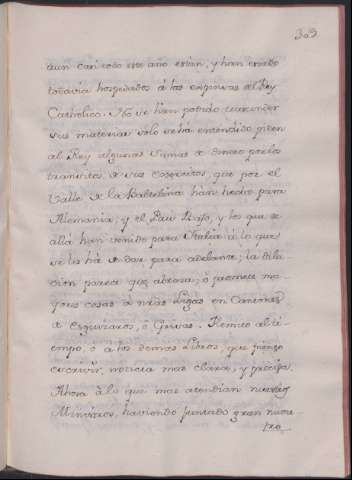 303
aun casi todo este año estan, y han estado
todavia hospedados à las expensas del Rey
Catholico. No se han podido trascender
sus materias solo se hà entendido piden
al Rey algunas sumas de dinero por los
transitos de sus exercitos, que por el
Valle de la Baltelina han hecho para
Alemania, y el Pais Baxo, y los que de
allà han venido para Italia à lo que
se les hà de dar para adelante; la dila-
cion parece que abrasa; ò promete ma-
yores cosas à nras Ligas en Cantones
de Esguizaros, ò Grisas. Remito al ti-
empo, ò a los demas Libros, que pienso
escrivir, noticia mas clara, y precisa.
Ahora à lo que mas atendian nuestros
Ministros, haviendo juntado gran nume-
ro